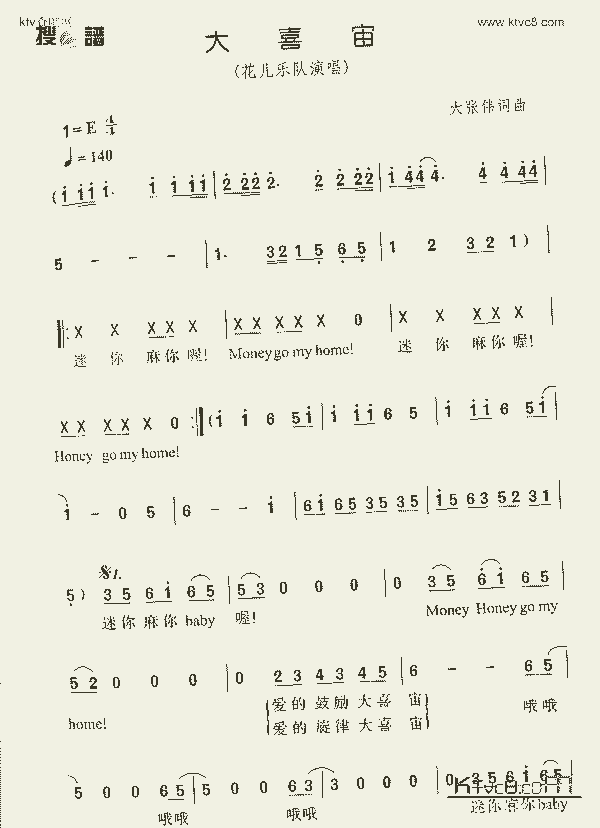 搜谱 www.ktvc8.com
大喜宙
(花儿乐队演唱)
大张伟词曲
1=E 4/4
♩=140
(i i i i i. i i i i | 2 2 2 2 2. 2 2 2 2 | i 4 4 4. 4 4 4 4 |
5 - - - | 1. 3 2 1 5 6 5 | 1 2 3 2 1 )
‖: X X X X X | X X X X X 0 | X X X X X |
迷 你 麻 你 喔! Money go my home! 迷 你 麻 你 喔!
X X X X X 0 :‖ (i i 6 5 i | i i i 6 5 | i i i 6 5 i
Honey go my home!
i - 0 5 | 6 - - i | 6 i 6 5 3 5 3 5 | i 5 6 3 5 2 3 1 |
𝄋1.
5 ) 3 5 6 i 6 5 | 5 3 0 0 0 | 0 3 5 6 i 6 5 |
迷 你 麻 你 baby 喔! Money Honey go my
5 2 0 0 0 | 0 2 3 4 3 4 5 | 6 - - 6 5 |
home! 爱 的 鼓 励 大 喜 宙 哦 哦
爱 的 旋 律 大 喜 宙
5 0 0 6 5 | 5 0 0 6 3 | 3 0 0 0 | 0 3 5 6 i 6 5
哦哦 哦哦 迷 你 baby
Ktvc8.com